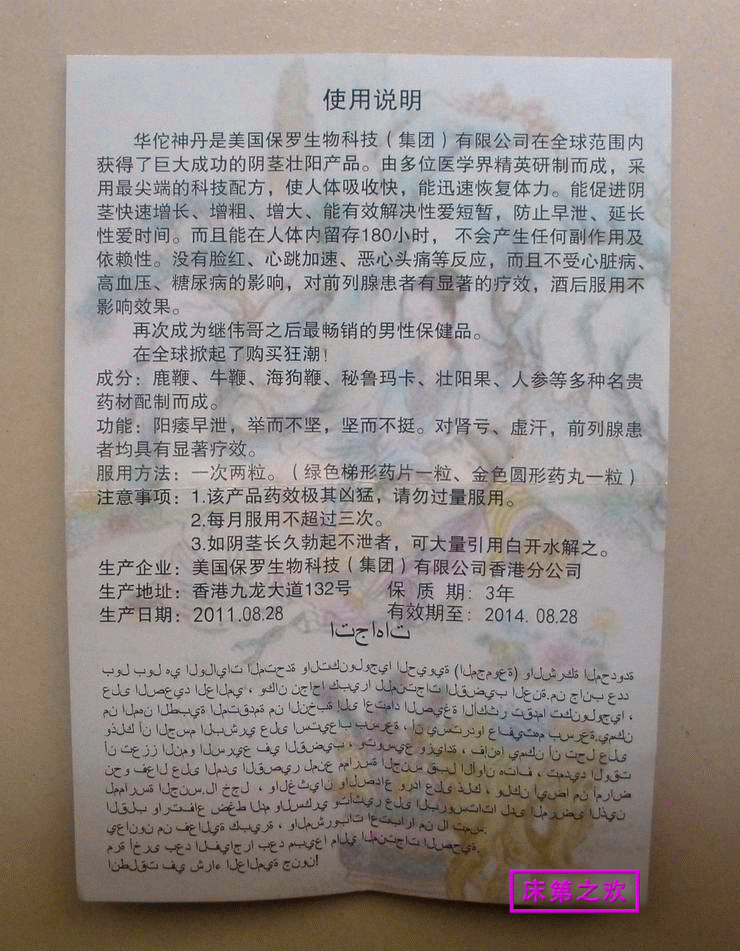 使用说明
华佗神丹是美国保罗生物科技（集团）有限公司在全球范围内
获得了巨大成功的阴茎壮阳产品。由多位医学界精英研制而成，采
用最尖端的科技配方，使人体吸收快，能迅速恢复体力。能促进阴
茎快速增长、增粗、增大、能有效解决性爱短暂，防止早泄、延长
性爱时间。而且能在人体内留存180小时， 不会产生任何副作用及
依赖性。没有脸红、心跳加速、恶心头痛等反应，而且不受心脏病、
高血压、糖尿病的影响，对前列腺患者有显著的疗效，酒后服用不
影响效果。
再次成为继伟哥之后最畅销的男性保健品。
在全球掀起了购买狂潮！
成分：鹿鞭、牛鞭、海狗鞭、秘鲁玛卡、壮阳果、人参等多种名贵
药材配制而成。
功能：阳痿早泄，举而不坚，坚而不挺。对肾亏、虚汗，前列腺患
者均具有显著疗效。
服用方法：一次两粒。（绿色梯形药片一粒、金色圆形药丸一粒）
注意事项：1.该产品药效极其凶猛，请勿过量服用。
2.每月服用不超过三次。
3.如阴茎长久勃起不泄者，可大量引用白开水解之。
生产企业：美国保罗生物科技（集团）有限公司香港分公司
生产地址：香港九龙大道132号 保 质 期：3年
生产日期：2011.08.28 有效期至：2014. 08.28
اتجاهات
بول بول هي الولايات المتحدة والتكنولوجيا الحيوية (المجموعة) والشركة المحدودة
على الصعيد العالمي ، وكان نجاحا كبيرا المنتجات القضيب العنة.من جانب عدد
من المهن الطبية المتقدمة من النخبة إلى اعتماد الصيغة الأكثر تقدما تكنولوجيا ،
وذلك أن الجسم البشري على استيعاب بسرعة ، أن يستردوا عافيتهم بسرعة.يمكن
أن تعزز النمو السريع في القضيب ، وتوسيع وزيادة ، فإنها يمكن أن تحل على
نحو فعال على المدى القصير لمنع ممارسة الجنس قبل الأوان هتاف ، تمديد الوقت
لممارسة الجنس.لا خجل ، والغثيان والصداع وردا على ذلك ، ولكن أيضا من أمراض
القلب وارتفاع ضغط الدم والسكري وتأثير على البروستاتا لدى المرضى الذين
يعانون من فعالية كبيرة ، والمشروبات اعتبارا من لا تمس.
مرة أخرى بعد الفياجرا بعد مبيعا مالي المنتجات الصحية.
انطلقت في شراء العالمية جنون!
床第之欢